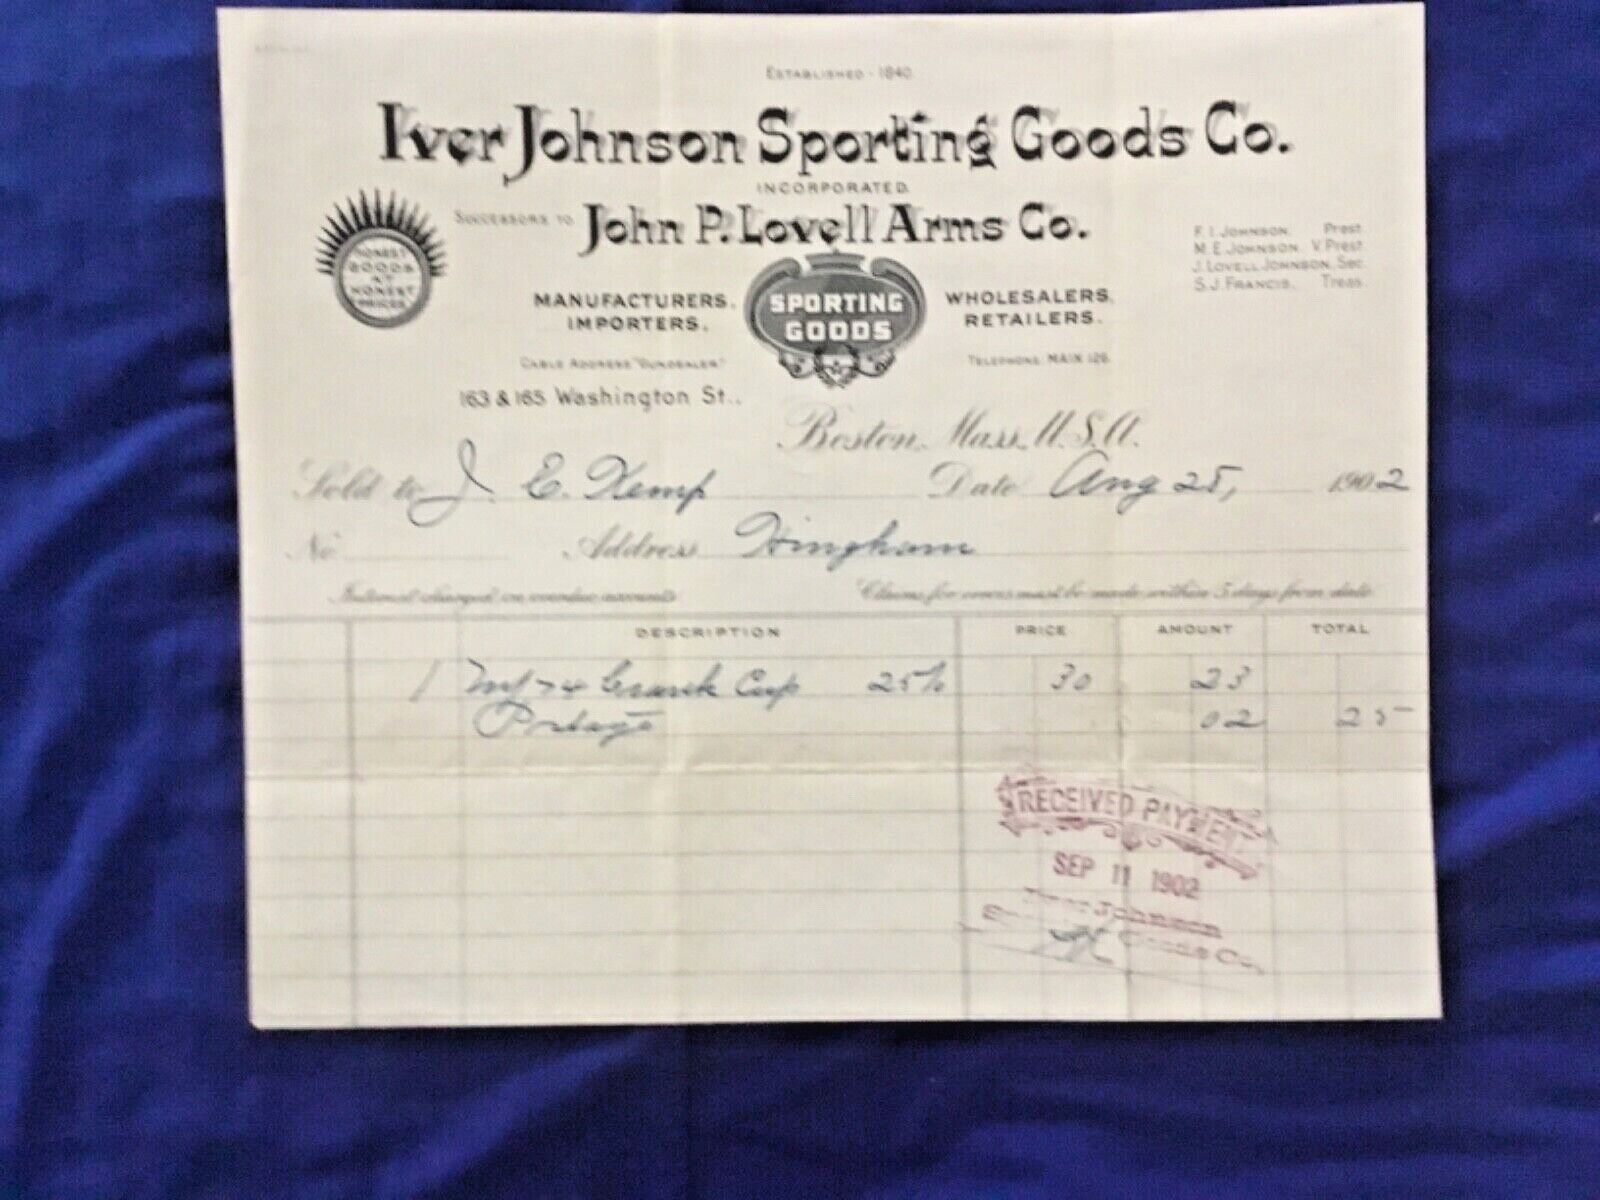 ESTABLISHED - 1840.
Iver Johnson Sporting Goods Co.
INCORPORATED.
SUCCESSORS TO John P. Lovell Arms Co.
HONEST
GOODS
AT
HONEST
PRICES
F. I. JOHNSON. Prest
M. E. JOHNSON. V. Prest
J. LOVELL JOHNSON, Sec.
S. J. FRANCIS, Treas.
MANUFACTURERS.
IMPORTERS.
SPORTING
GOODS
WHOLESALERS.
RETAILERS.
CABLE ADDRESS "GUNDEALER"
TELEPHONE. MAIN 126.
163 & 165 Washington St.,
Boston, Mass. U.S.A.
Sold to J. E. Kemp Date Aug 25, 1902
No Address Hingham
Interest charged on overdue accounts
Claims for errors must be made within 5 days from date
DESCRIPTION PRICE AMOUNT TOTAL
1 Crank Cup 25% 30 23
Postage 02 25
RECEIVED PAYMENT
SEP 11 1902
Iver Johnson
Goods Co.